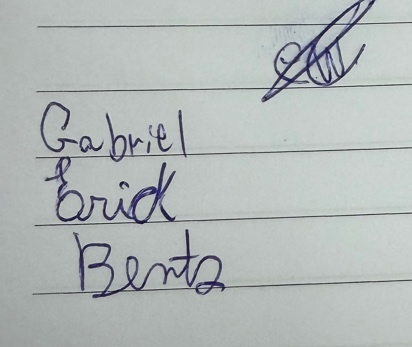 Gabriel
Erick
Bentz